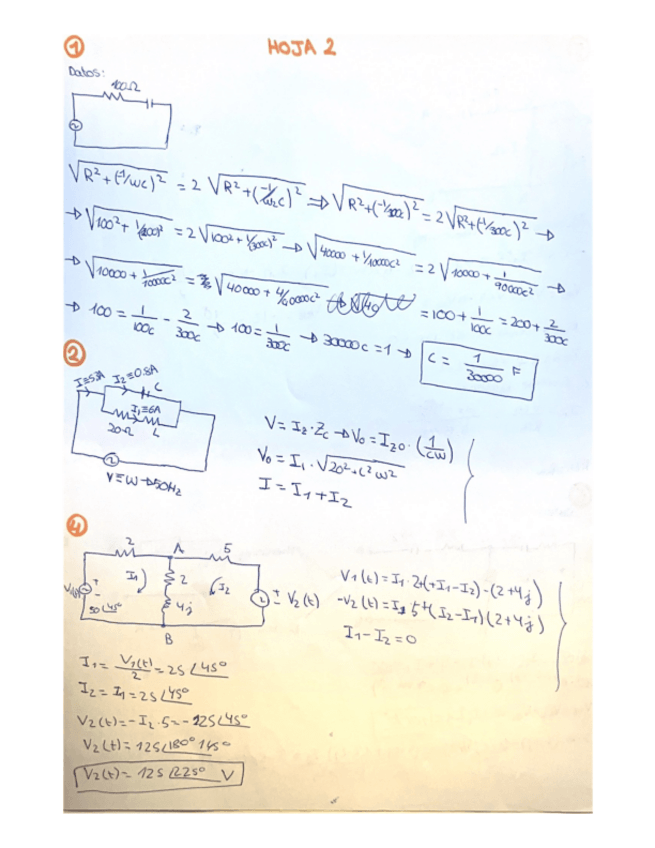 ① HOJA 2
Datos:
100Ω
√R²+(-1/ωc)² = 2 √R²+(-1/ω2c)² ⇒ √R²+(-1/100c)² = 2√R²+(-1/300c)² →
→ √100²+(1/100c)² = 2√100²+(1/300c)² → √40000+1/10000c² = 2√10000+1/90000c² →
= 100+1/100c = 200+2/300c
→ 100 = 1/100c - 2/300c → 100 = 1/300c → 30000c = 1 → C = 1/30000 F
②
I=5A I2=0.8A C
I1=6A
20Ω L
V=ω→50Hz
V = I2·Zc → V0 = I20·(1/cω)
V0 = I1·√20²+L²ω²
I = I1+I2
④
2 A 5
I1 2 I2
4j V2(t)
50∠45°
B
-V2(t) = I2 5+(I2-I1)(2+4j)
I1-I2=0
I1 = V1(t)/2 = 25∠45°
I2 = I1 = 25∠45°
V2(t) = -I2·5 = -125∠45°
V2(t) = 125∠180° 145°
V2(t) = 125∠225° V